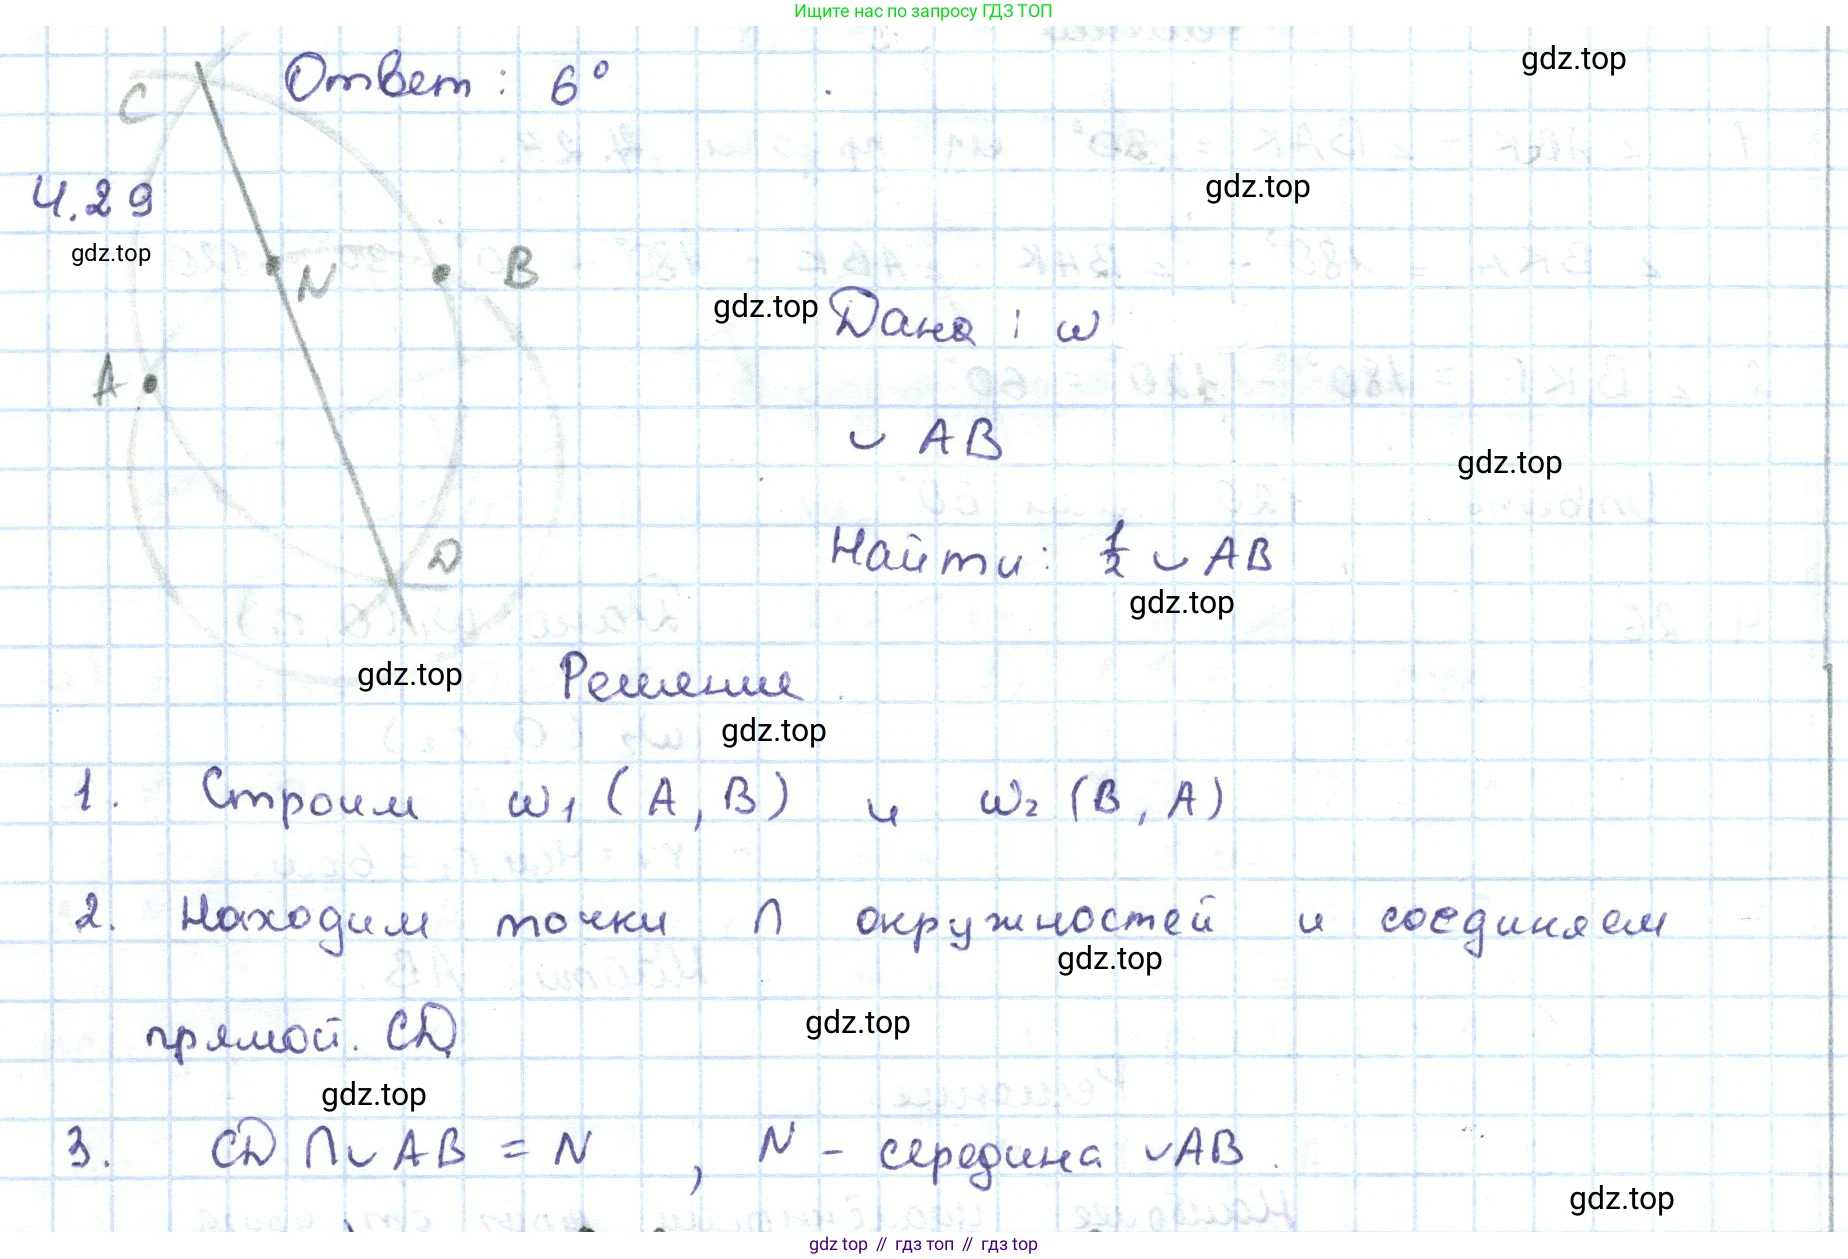 Ищите нас по запросу ГДЗ ТОП
Ответ: 6°
gdz.top
C
4.29
gdz.top
gdz.top
N
B
gdz.top
Дана: ω
A
◡ AB
gdz.top
D
Найти: 1/2 ◡ AB
gdz.top
gdz.top
Решение
gdz.top
1. Строим ω₁ (A, B) и ω₂ (B, A)
2. Находим точки ∩ окружностей и соединяем
gdz.top
прямой. CD
gdz.top
gdz.top
3. CD ∩ ◡ AB = N , N - середина ◡AB.
gdz.top
gdz top // гдз топ // gdz top